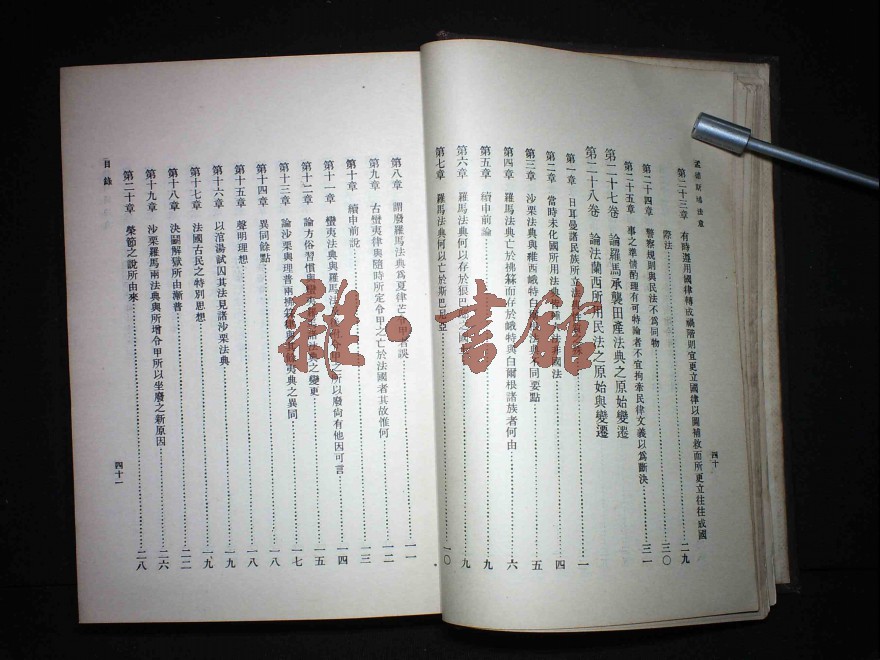 孟德斯鳩法意
四十
第二十三章 有時遵用國律轉成禍階則宜更立國律以圖補救而所更立往往成國
際法……三〇
第二十四章 警察規則與民法不為同物……三一
第二十五章 事之準情酌理有可特論者不宜拘牽民律文義以為斷決
第二十七卷 論羅馬承襲田產法典之原始變遷
第二十八卷 論法蘭西所用民法之原始與變遷
第一章 日耳曼諸民族所立法……一
第二章 當時未化國所用法典……四
第三章 沙栗法典與維西峨特白……不同要點……五
第四章 羅馬法典亡於拂箖而存於峨特與白爾根諸族者何由……六
第五章 續申前論……九
第六章 羅馬法典何以存於狠巴……九
第七章 羅馬法典何以亡於斯巴尼亞……一〇
第八章 謂廢羅馬法典為夏律芒令甲者誤……一一
第九章 古蠻夷律與隨時所定令甲之亡於法國者其故惟何……一二
第十章 續申前說……一三
第十一章 蠻夷法典與羅馬法……令甲之所以廢尚有他因可言……一四
第十二章 論方俗習慣與蠻夷……法典之變更……一五
第十三章 論沙栗與理普兩拂箖律與……夷典之異同……一七
第十四章 異同餘點……一八
第十五章 聲明理想……一八
第十六章 以涫湯試囚其法見諸沙栗法典……一九
第十七章 法國古民之特別思想……一九
第十八章 決鬭解獄所由漸普……二二
第十九章 沙栗羅馬兩法典與所增令甲所以坐廢之新原因……二六
第二十章 榮節之說所由來……二八
目錄
四十一
雜·書館